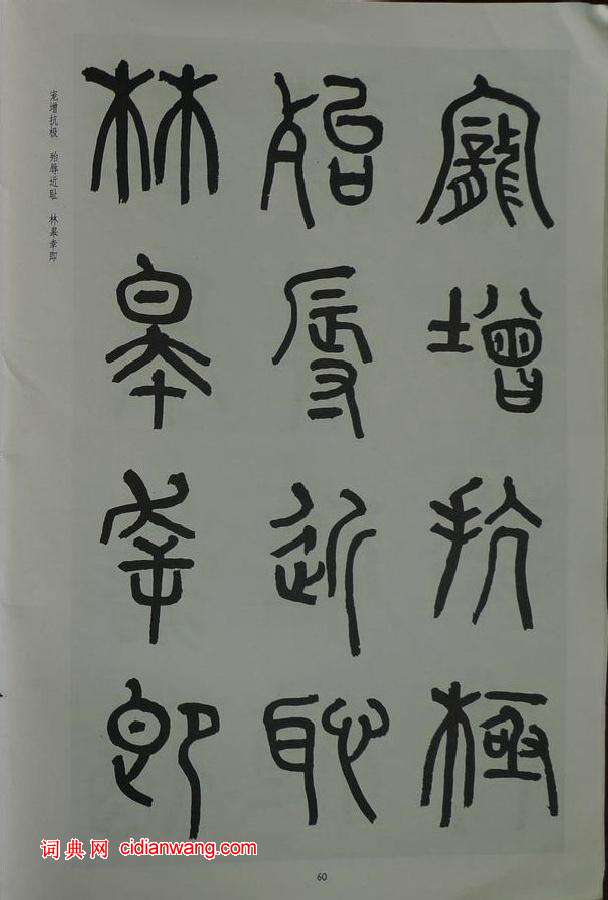 寵增抗極
殆辱近恥
林皋幸即
宠增抗极 殆辱近耻 林皋幸即
词典网 cidianwang.com
60